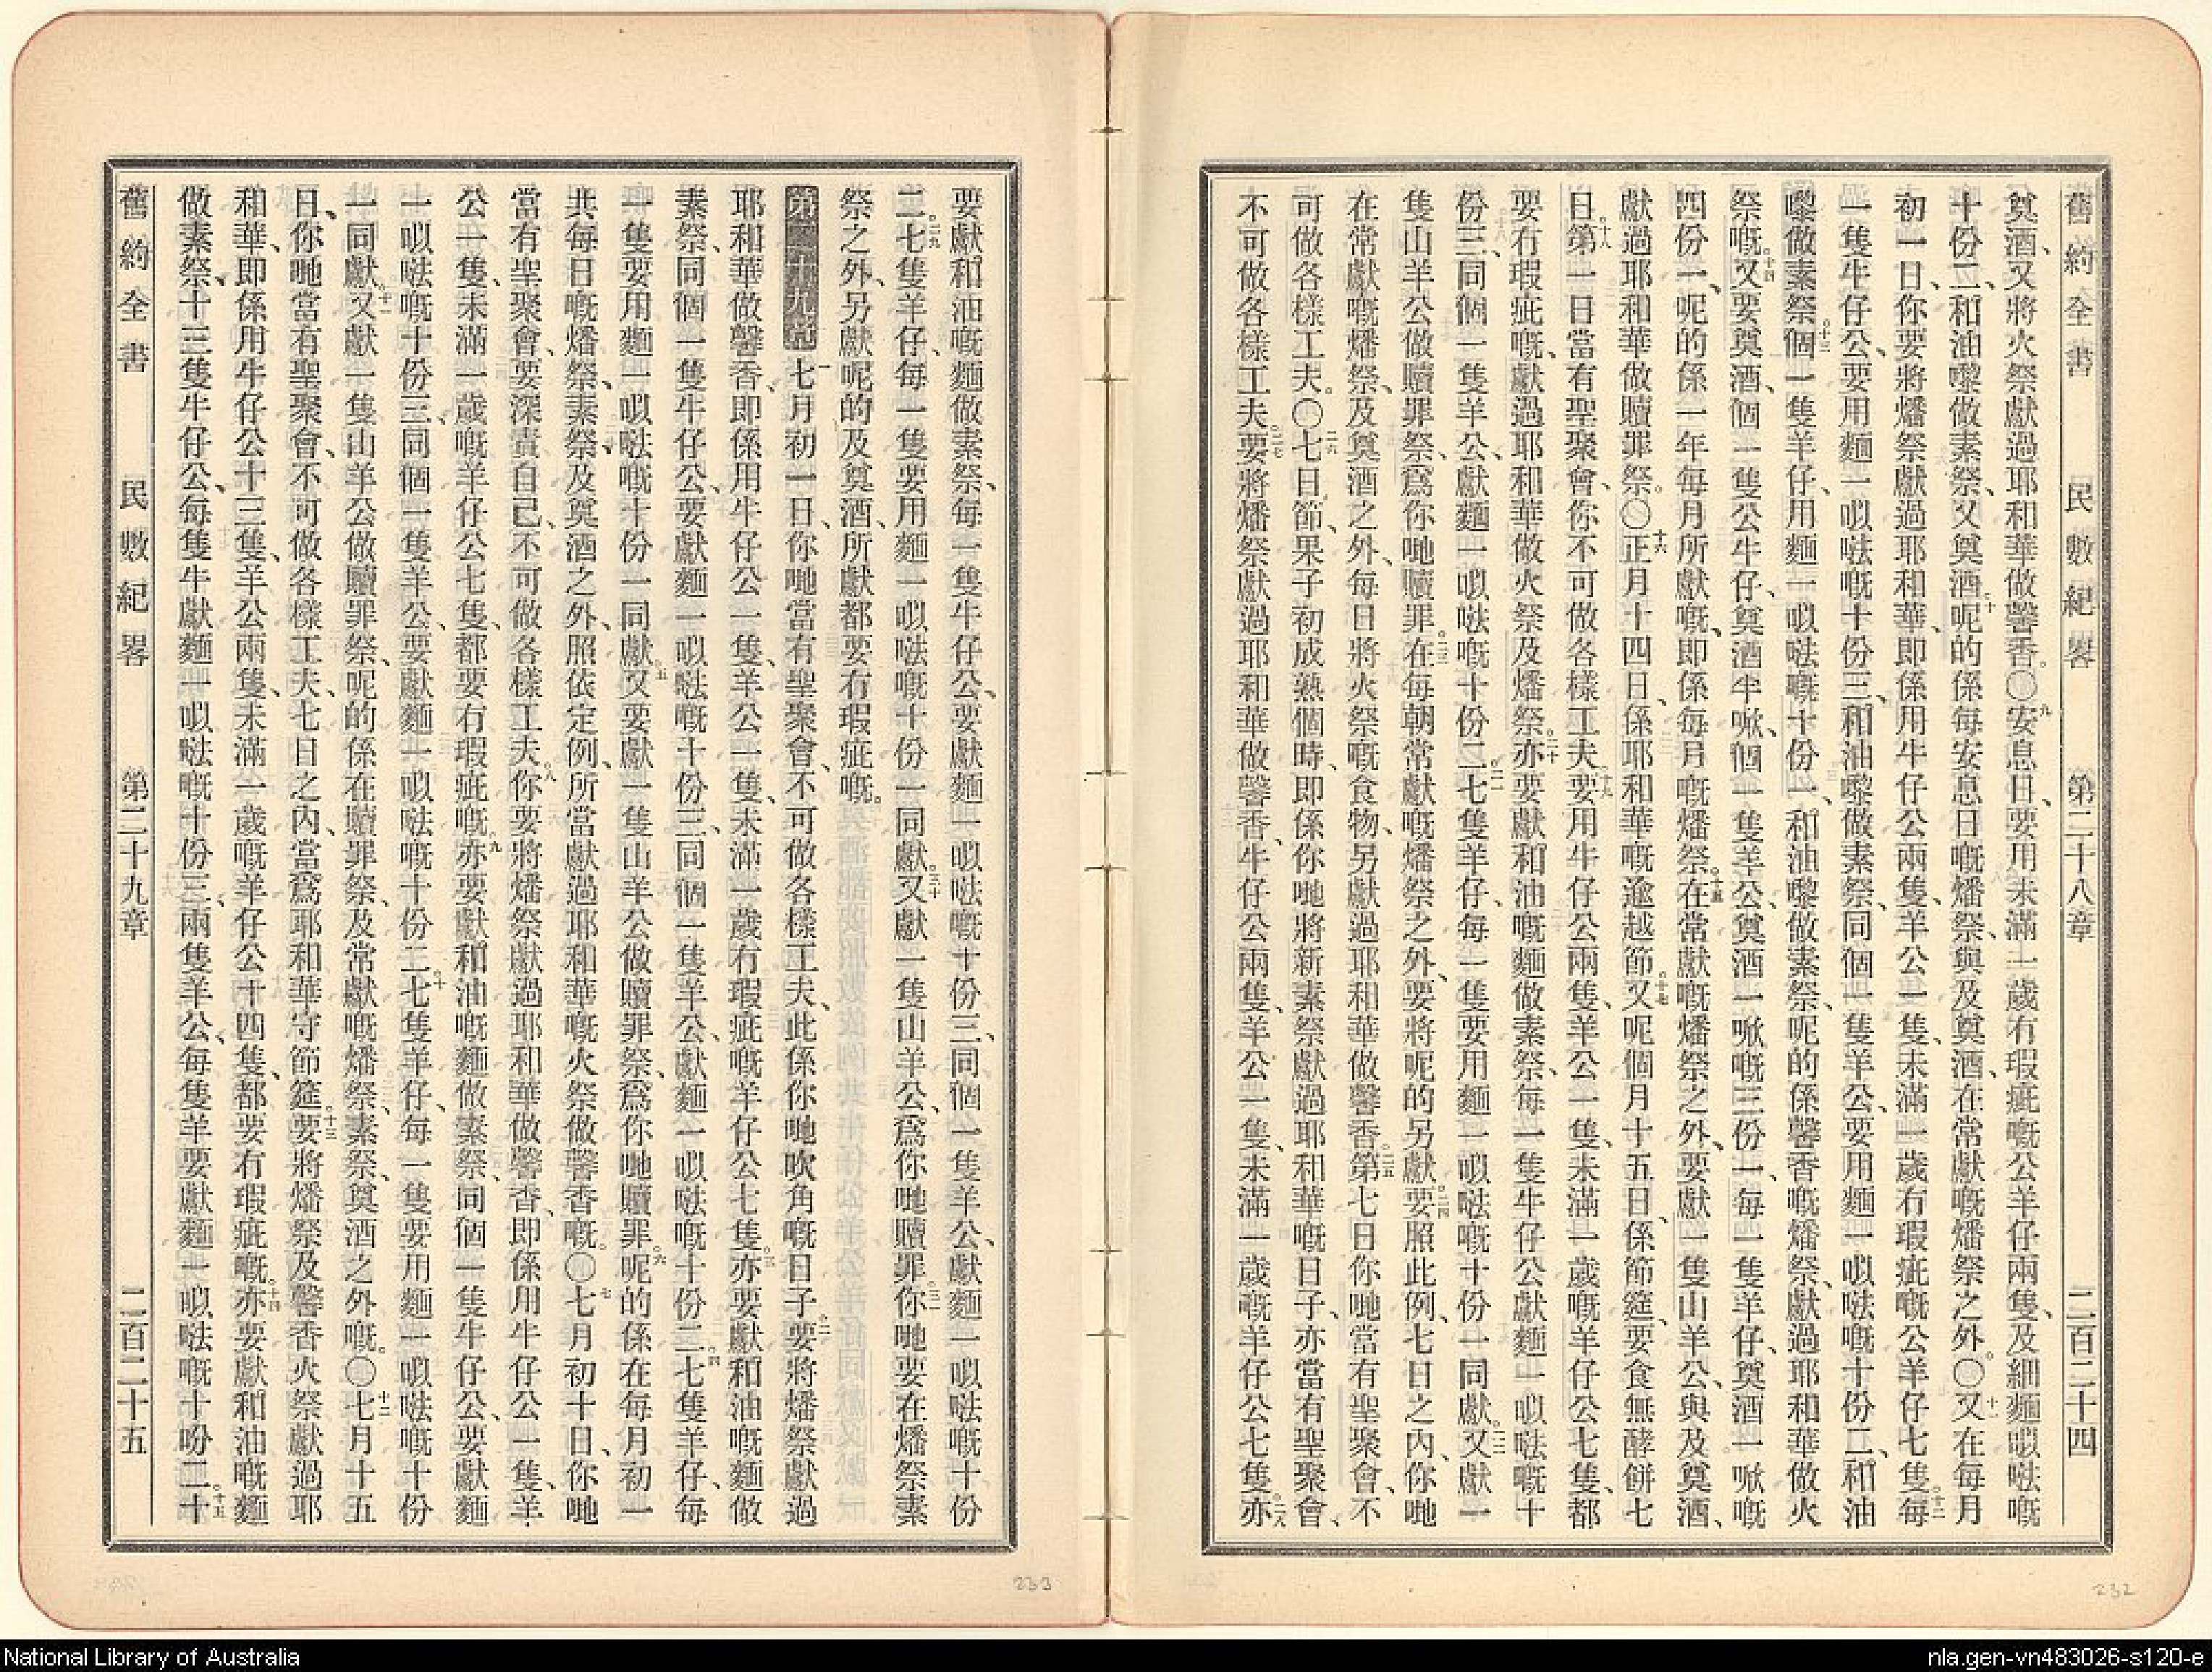 舊約全書 民數紀畧 第二十八章 二百二十四
奠酒、又將火祭獻過耶和華做馨香。〇九安息日、要用未滿一歲冇瑕疵嘅公羊仔兩隻、及細麵㕥㗾嘅
十份二、和油嚟做素祭、又奠酒、十呢的係每安息日嘅燔祭、與及奠酒、在常獻嘅燔祭之外。〇十一又在每月
初一日、你要將燔祭獻過耶和華、即係用牛仔公兩隻、羊公一隻、未滿一歲冇瑕疵嘅公羊仔七隻。十二每
一隻牛仔公、要用麵一㕥㗾嘅十份三、和油嚟做素祭、同個一隻羊公、要用麵一㕥㗾嘅十份二、和油
嚟做素祭。十三個一隻羊仔、用麵一㕥㗾嘅十份一、和油嚟做素祭、呢的係馨香嘅燔祭、獻過耶和華做火
祭嘅。十四又要奠酒、個一隻公牛仔、奠酒半㖽、個一隻羊公、奠酒一㖽嘅三份一、每一隻羊仔、奠酒一㖽嘅
四份一、呢的係一年每月所獻嘅、即係每月嘅燔祭。十五在常獻嘅燔祭之外、要獻一隻山羊公、與及奠酒、
獻過耶和華做贖罪祭。〇十六正月十四日、係耶和華嘅逾越節。十七又呢個月十五日、係節筵、要食無酵餅七
日。十八第一日當有聖聚會、你不可做各樣工夫。十九要用牛仔公兩隻、羊公一隻、未滿一歲嘅羊仔公七隻、都
要冇瑕疵嘅、獻過耶和華做火祭及燔祭。二十亦要獻和油嘅麵做素祭、每一隻牛仔公獻麵一㕥㗾嘅十
份三、同個一隻羊公、獻麵一㕥㗾嘅十份二。二一七隻羊仔、每一隻要用麵一㕥㗾嘅十份一同獻。二二又獻一
隻山羊公做贖罪祭、爲你哋贖罪。二三在每朝常獻嘅燔祭之外、要將呢的另獻。二四要照此例、七日之內、你哋
在常獻嘅燔祭、及奠酒之外、每日將火祭嘅食物、另獻過耶和華做馨香。二五第七日你哋當有聖聚會、不
可做各樣工夫。〇二六七日節、果子初成熟個時、即係你哋將新素祭獻過耶和華嘅日子、亦當有聖聚會、
不可做各樣工夫。二七要將燔祭獻過耶和華做馨香、牛仔公兩隻、羊公一隻、未滿一歲嘅羊仔公七隻。二八亦
要獻和油嘅麵做素祭、每一隻牛仔公、要獻麵一㕥㗾嘅十份三、同個一隻羊公、獻麵一㕥㗾嘅十份
二。二九七隻羊仔、每一隻要用麵一㕥㗾嘅十份一同獻。三十又獻一隻山羊公、爲你哋贖罪。三一你哋要在燔祭素
祭之外、另獻呢的及奠酒、所獻都要冇瑕疵嘅。
第二十九章 一七月初一日、你哋當有聖聚會、不可做各樣工夫、此係你哋吹角嘅日子。二要將燔祭獻過
耶和華做馨香、即係用牛仔公一隻、羊公一隻、未滿一歲冇瑕疵嘅羊仔公七隻。三亦要獻和油嘅麵做
素祭、同個一隻牛仔公、要獻麵一㕥㗾嘅十份三、同個一隻羊公、獻麵一㕥㗾嘅十份二。四七隻羊仔、每
一隻要用麵一㕥㗾嘅十份一同獻。五又要獻一隻山羊公做贖罪祭、爲你哋贖罪。六呢的係在每月初一
共每日嘅燔祭、素祭、及奠酒之外、照依定例、所當獻過耶和華嘅火祭做馨香嘅。〇七七月初十日、你哋
當有聖聚會、要深責自己、不可做各樣工夫。八你要將燔祭獻過耶和華做馨香、即係用牛仔公一隻、羊
公一隻、未滿一歲嘅羊仔公七隻、都要冇瑕疵嘅。九亦要獻和油嘅麵做素祭、同個一隻牛仔公、要獻麵
一㕥㗾嘅十份三、同個一隻羊公、要獻麵一㕥㗾嘅十份二。十七隻羊仔、每一隻要用麵一㕥㗾嘅十份
一同獻。十一又獻一隻山羊公做贖罪祭、呢的係在贖罪祭、及常獻嘅燔祭、素祭、奠酒之外嘅。〇十二七月十五
日、你哋當有聖聚會、不可做各樣工夫、七日之內、當爲耶和華守節筵。十三要將燔祭及馨香火祭獻過耶
和華、即係用牛仔公十三隻、羊公兩隻、未滿一歲嘅羊仔公十四隻、都要冇瑕疵嘅。十四亦要獻和油嘅麵
做素祭、十三隻牛仔公、每隻牛獻麵一㕥㗾嘅十份三、兩隻羊公、每隻羊要獻麵一㕥㗾嘅十吩二。十五十
舊約全書 民數紀畧 第二十九章 二百二十五
232
233
National Library of Australia
nla.gen-vn483026-s120-e